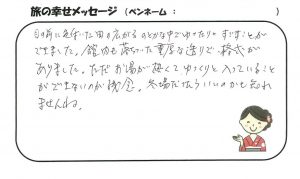 旅の幸せメッセージ（ペンネーム：　　　　）
目の前に色づいた田の広がるのどかな中でゆったりとすごすことが
できました。館内も落ちついた重厚な造りで格式が
ありました。ただお湯が熱くてゆっくりと入っていること
ができないのが残念。冬場だったらいいのかも知れ
ませんね。